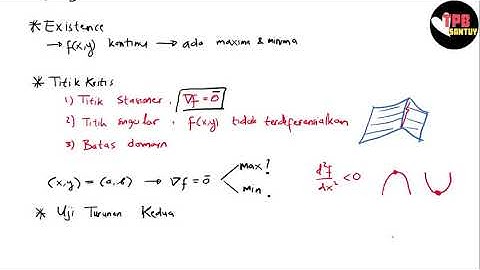 TPB
SANTUY
* Existence
→ f(x,y) kontinu → ada maxima & minima
* Titik Kritis
1) Titik Stasioner, ∇f = 0̄
2) Titik singular, f(x,y) tidak terdeferensialkan
3) Batas domain
(x,y) = (a,b) → ∇f = 0̄ < max? min?
d²f/dx² < 0
* Uji Turunan Kedua